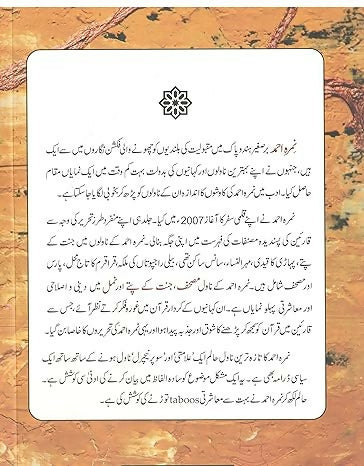 نمرہ احمد برصغیر ہند و پاک میں مقبولیت کی بلندیوں کو چھونے والی فکشن نگاروں میں سے ایک
ہیں، جنہوں نے اپنے بہترین ناولوں اور کہانیوں کی بدولت بہت کم وقت میں ایک نمایاں مقام
حاصل کیا۔ ادب میں نمرہ احمد کی کاوشوں کا اندازہ ان کے ناولوں کو پڑھ کر بخوبی لگایا جا سکتا ہے۔
نمرہ احمد نے اپنے قلمی سفر کا آغاز 2007ء میں کیا۔ جلد ہی اپنے منفرد طرز تحریر کی وجہ سے
قارئین کی پسندیدہ مصنفات کی فہرست میں اپنی جگہ بنا لی۔ نمرہ احمد کے ناولوں میں جنت کے
پتے، پہاڑی کا قیدی، مہرالنساء، سانس ساکن تھی، بیلی راجپوتاں کی ملکہ، قراقرم کا تاج محل، پارس
اور مصحف شامل ہیں۔ نمرہ احمد کے ناول مصحف، جنت کے پتے اور نمل میں دینی و اصلاحی
اور معاشرتی پہلو نمایاں ہے۔ ان کہانیوں کے کردار قرآن میں غور و فکر کرتے نظر آئے، جس سے
قارئین میں قرآن کو سمجھ کر پڑھنے کا شوق اور جذبہ پیدا ہوا اور یہی نمرہ احمد کی تحریروں کا خاصا بن گیا۔
نمرہ احمد کا تازہ ترین ناول حالم ایک علامتی اور سوپر نیچرل ناول ہونے کے ساتھ ساتھ ایک
سیاسی ڈرامہ بھی ہے۔ یہ ایک مشکل موضوع کو سادہ الفاظ میں بیان کرنے کی ادنیٰ سی کوشش ہے۔
حالم لکھ کر نمرہ احمد نے بہت سے معاشرتی taboos توڑنے کی کوشش کی ہے۔